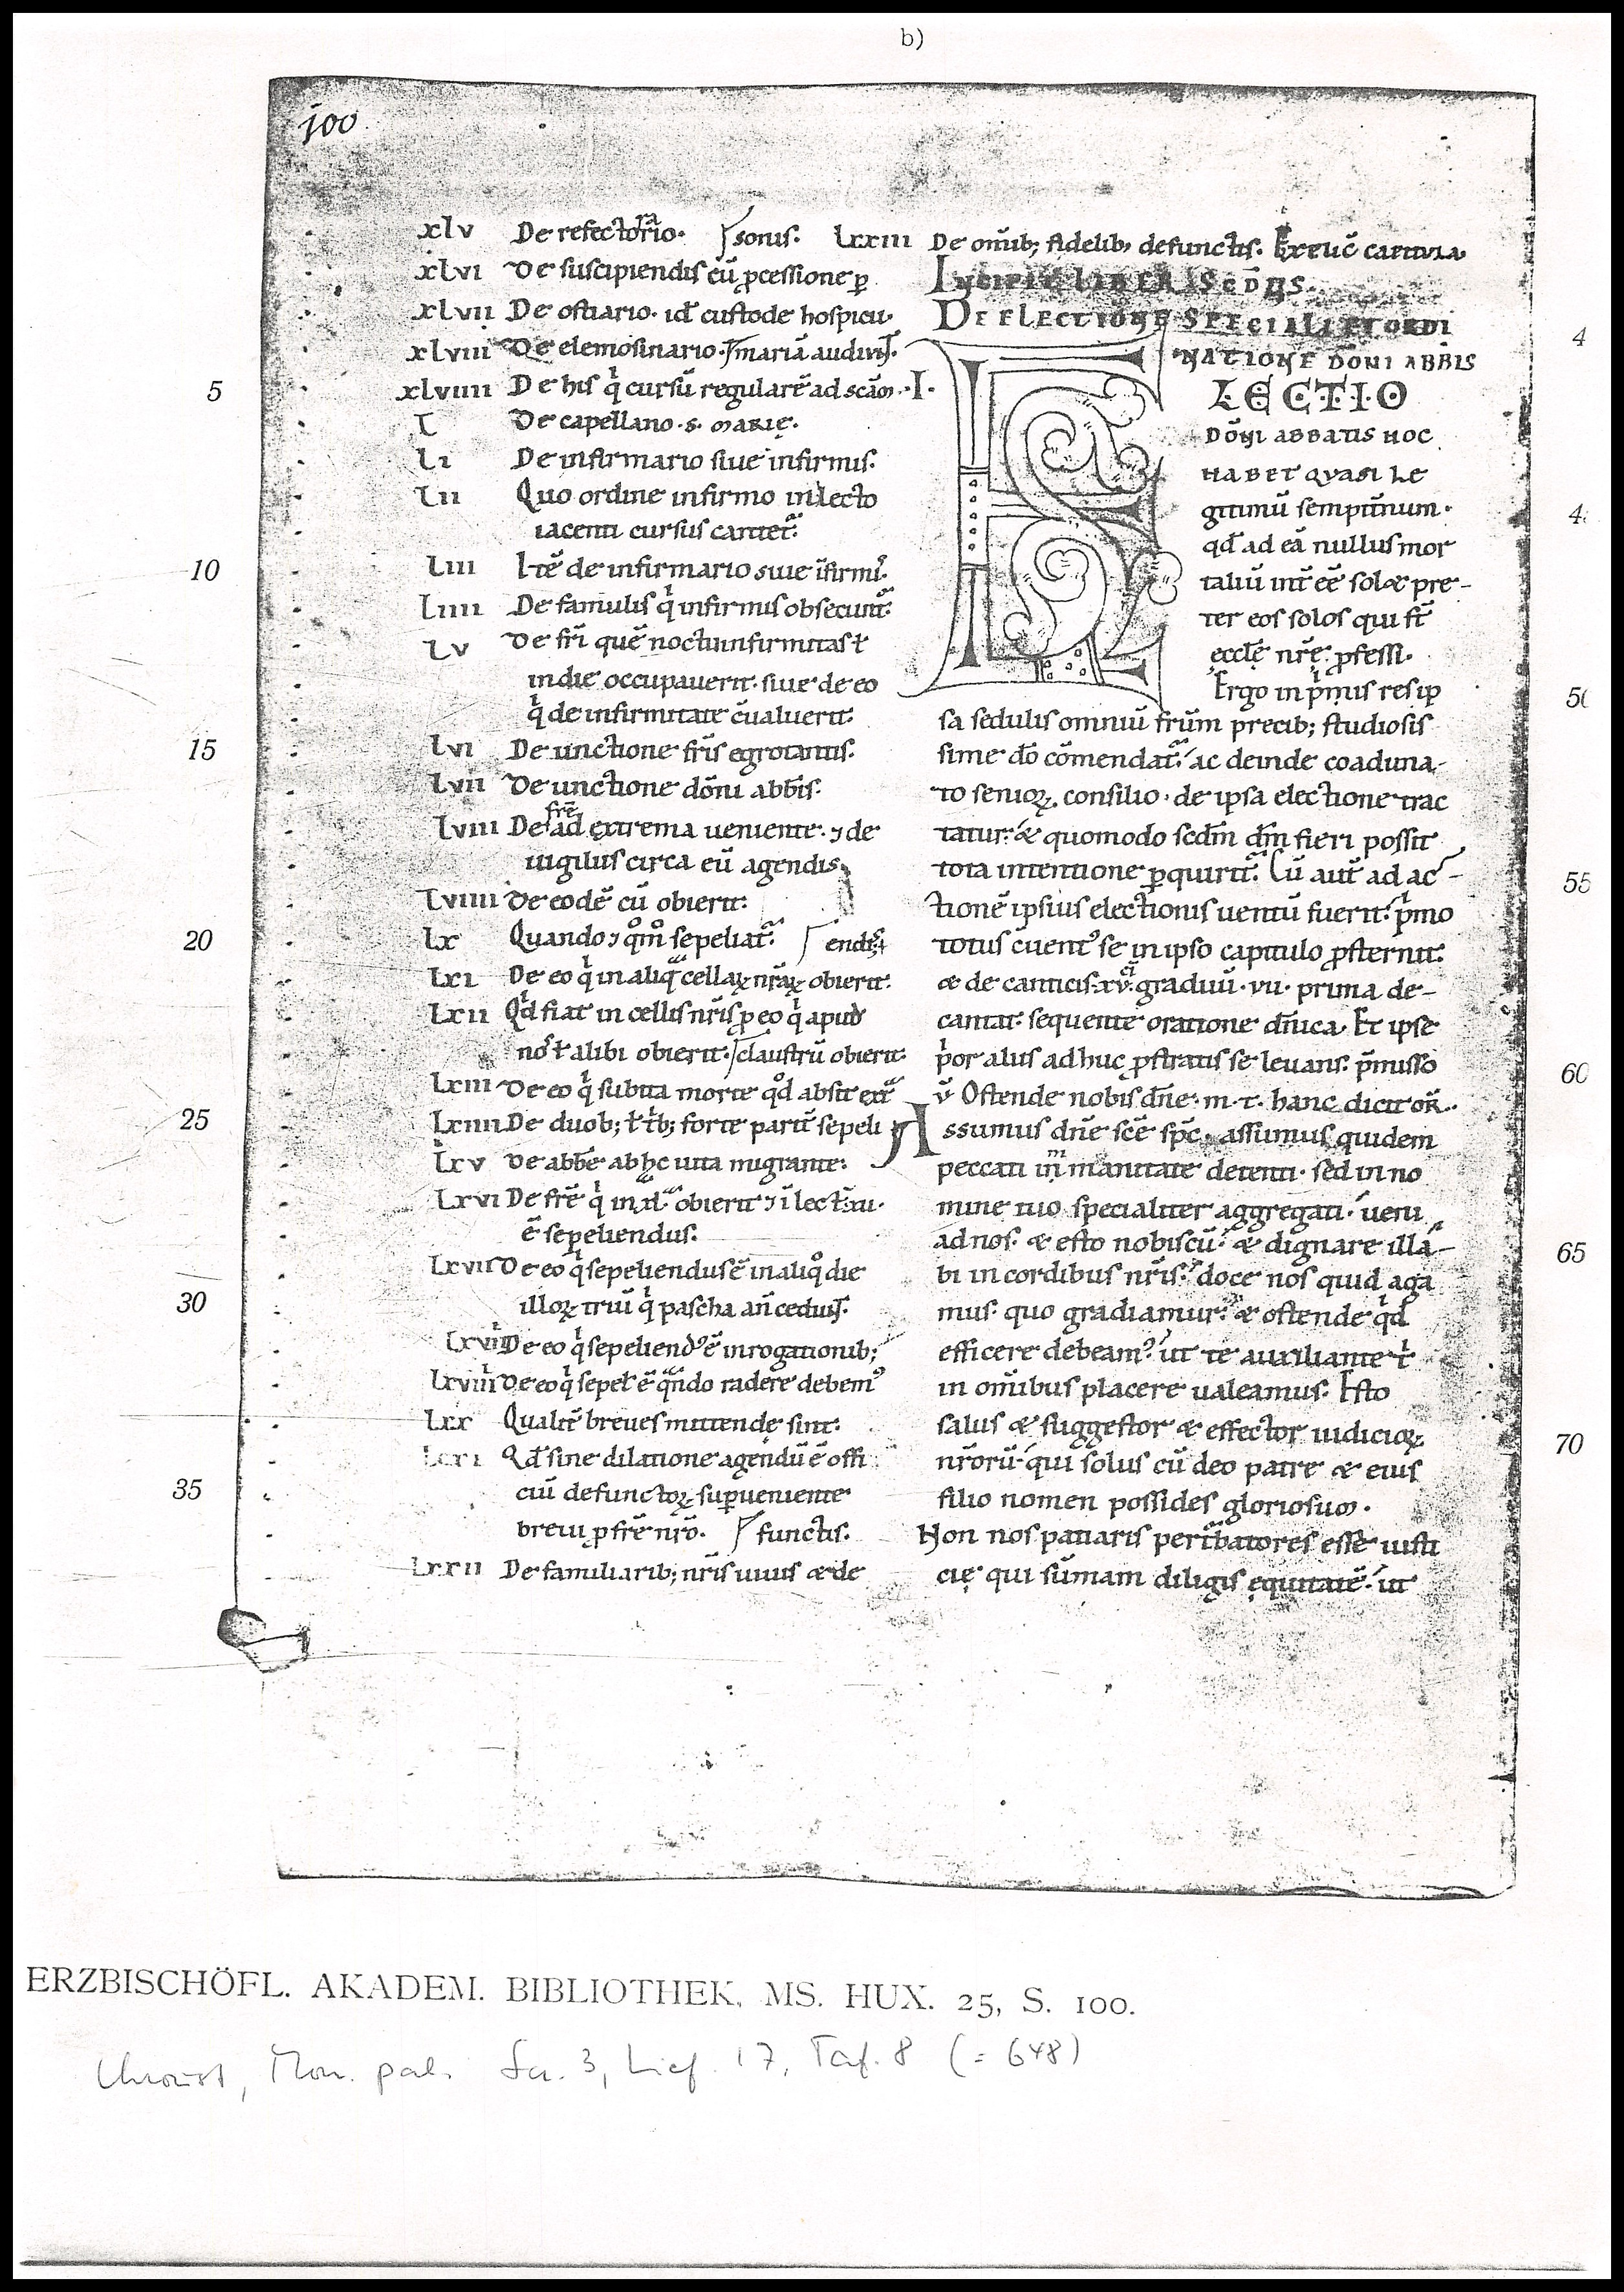 b)
100
xlv De refectorario. sonis.
xlvi De suscipiendis cū ꝓcessione ꝑ
xlvii De ostiario. id̄ custode hospicii.
xlviii De elemosinario. mariā
5 xlviiii De his q̇ cursū regularē ad scām
L De capellano .s. marię.
Li De infirmario siue infirmis.
Lii Quo ordine infirmo in lecto
iacenti cursus cantet᷑.
10 Liii Itē de infirmario siue īfirmi.
Liiii De famulis q̇ infirmis
Lv De fr̄i quē noctu infirmitas ł
in die occupauerit. siue de eo
q̇ de infirmitate c̄ualuerit.
15 Lvi De unctione fr̄is egrotantis.
Lvii De unctione dōni abb̄is.
Lviii De fr̄e ad extrema ueniente. ⁊ de
uigiliis circa eū agendis
Lviiii De eodē cū obierit.
20 Lx Quando ⁊ qm̊ sepeliat᷑. endi
Lxi De eo q̇ in aliq cellaꝝ nr̄aꝝ obierit.
Lxii Qd̄ fiat in cellis nr̄is ꝓ eo q̇ apud
nos ł alibi obierit. claustrū obierit.
Lxiii De eo q̇ subita morte qd̊ absit ext᷑
25 Lxiiii De duob; ł t̄b; forte parit̄ sepeli
Lxv De abbe ab hac uita migrante.
Lxvi De fr̄e q̇ obierit ⁊
ē sepeliendus.
Lxvii De eo q̇ sepeliendus ē in aliqo die
30 illoꝝ triū q̇ pascha
Lxviii De eo q̇ sepeliendꝰ ē in rogationib;
Lxviiii De eo q̇ sepeł ē qndo radere debemꝰ
Lxx Qualit̄ breues mittende sint.
Lxxi Qd̄ sine dilatione agendū ē offi
35 ciū defunctoꝝ superueniente
breui ꝓ fr̄e nr̄o. functis.
Lxxii De familiarib; nr̄is uiuis & de
Lxxiii De om̄ib; fidelib; defunctis. capitula.
Incipit liber scd̄us.
De electione speciali et ordi
natione dōni abbis
.I. E
LECTIO
dōni abbatis hoc
habet quasi le
gitimū sempit̄num.
qd̄ ad eā nullus mor
taliū int̄eē solet pre-
ter eos solos qui st̄
eccl̄ę nr̄ę ꝓfessi.
Ergo in p̄mis res ip
sa sedulis omniū fr̄um precib; studiosis
sime dō cōmendat᷑. ac deinde coaduna-
to senioꝝ consilio. de ipsa electione trac
tatur. & quomodo scdm̄ dm̄ fieri possit
tota intentione ꝑquirit᷑. Cū aut̄ ad ac-
55
tionē ipsius electionis uentū fuerit. p̄mo
totus c̄uentꝰ se in ipso capitulo ꝓsternit.
& de canticis .xv. graduū .vii. prima de-
cantat. sequente oratione dn̄ica. Et ipse
p̄or aliis adhuc ꝓstratis se leuans. p̄misso
60
v̄ Ostende nobis dn̄e. m. t. hanc dicit or̄.
Assumus dn̄e scē spc̄. assumus quidem
peccati immanitate detenti. sed in no
mine tuo specialiter aggregati. ueni
ad nos. & esto nobiscū. & dignare illa-
65
bi in cordibus nr̄is. doce nos quid aga
mus. quo gradiamur. & ostende q̇d
efficere debeamꝰ. ut te auxiliante t̄
in om̄ibus placere ualeamus. Esto
salus & suggestor & effector iudicioꝝ
70
nr̄orū. qui solus cū deo patre & eius
filio nomen possides gloriosum.
Non nos patiaris pert̄batores esse iusti
cię qui sūmam diligis equitatē. ut
ERZBISCHÖFL. AKADEM. BIBLIOTHEK, MS. HUX. 25, S. 100.
Chroust, Mon. pal. Ser. 3, Lief. 17, Taf. 8 (= 648)